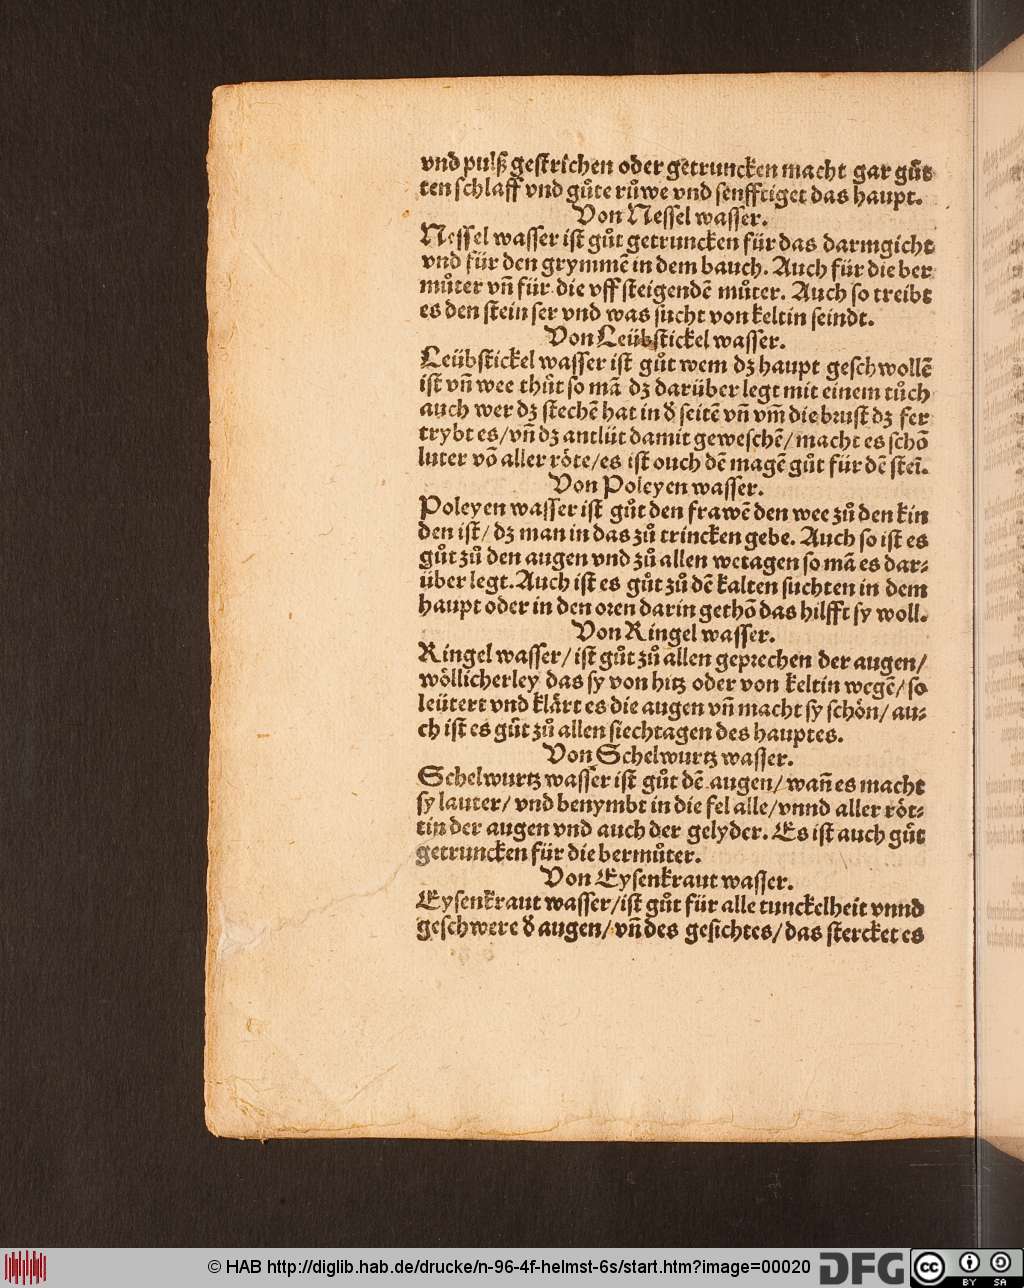 vnd pulß gestrichen oder getruncken macht gar guͦt
ten schlaff vnd guͦte ruͦwe vnd senfftiget das haupt.
Von Nessel wasser.
Nessel wasser ist guͦt getruncken für das darmgicht
vnd für den grymmē in dem bauch. Auch für die ber
muͦter vn̄ für die vff steigendē muͦter. Auch so treibt
es den stein ser vnd was sucht von keltin seindt.
Von Leübstickel wasser.
Leübstickel wasser ist guͦt wem dꝫ haupt geschwollē
ist vn̄ wee thuͦt so mā dꝫ darüber legt mit einem tuͦch
auch wer dꝫ stechē hat in đ seitē vn̄ vm̄ die brust dꝫ fer
trybt es/vn̄ dꝫ antlüt damit geweschē/macht es schō
luter vō aller roͤte/es ist ouch dē magē guͦt für dē steī.
Von Poleyen wasser.
Poleyen wasser ist guͦt den frawē den wee zuͦ den kin
den ist/dꝫ man in das zuͦ trincken gebe. Auch so ist es
guͦt zuͦ den augen vnd zuͦ allen wetagen so mā es dar⸗
über legt. Auch ist es guͦt zuͦ dē kalten suchten in dem
haupt oder in den oren darin gethō das hilfft sy woll.
Von Ringel wasser.
Ringel wasser/ist guͦt zuͦ allen geprechen der augen/
woͤllicherley das sy von hitz oder von keltin wegē/so
leütert vnd klaͤrt es die augen vn̄ macht sy schoͤn/au⸗
ch ist es guͦt zuͦ allen siechtagen des hauptes.
Von Schelwurtz wasser.
Schelwurtz wasser ist guͦt dē augen/wan̄ es macht
sy lauter/vnd benymbt in die fel alle/vnnd aller roͤt⸗
tin der augen vnd auch der gelyder. Es ist auch guͦt
getruncken für die bermuͦter.
Von Eysenkraut wasser.
Eysenkraut wasser/ist guͦt für alle tunckelheit vnnd
geschwere đ augen/vn̄ des gesichtes/das stercket es
© HAB http://diglib.hab.de/drucke/n-96-4f-helmst-6s/start.htm?image=00020
DFG
cc BY SA